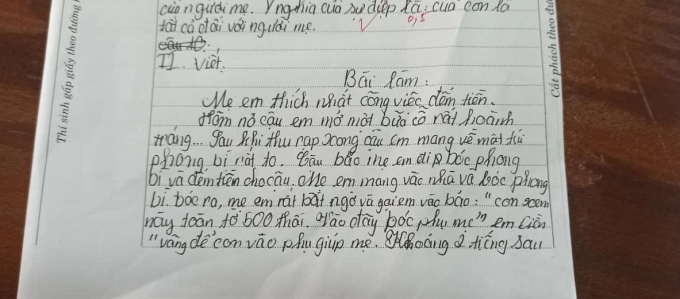 của người mẹ. Ý nghĩa của sự điệp là: của con là
tất cả đối với người mẹ.
0,5
câu 10:
II. Viết.
Bài làm:
Mẹ em thích nhất công việc đếm tiền.
Hôm nọ cậu em mở một bữa cỗ rất hoành
tráng... Sau khi thu rạp xong cậu em mang về một túi
phong bì rất to. Cậu bảo mẹ em đi bóc phong
bì và đếm tiền cho cậu, Mẹ em mang vào nhà và bóc phong
bì. bóc ra, mẹ em rất bất ngờ và gọi em vào bảo: "con xem
này toàn tờ 500 thôi. Vào đây bóc phụ mẹ" em liền
"vâng để con vào phụ giúp mẹ. Khoảng 2 tiếng sau
Thí sinh gấp giấy theo đường
Cắt phách theo đư